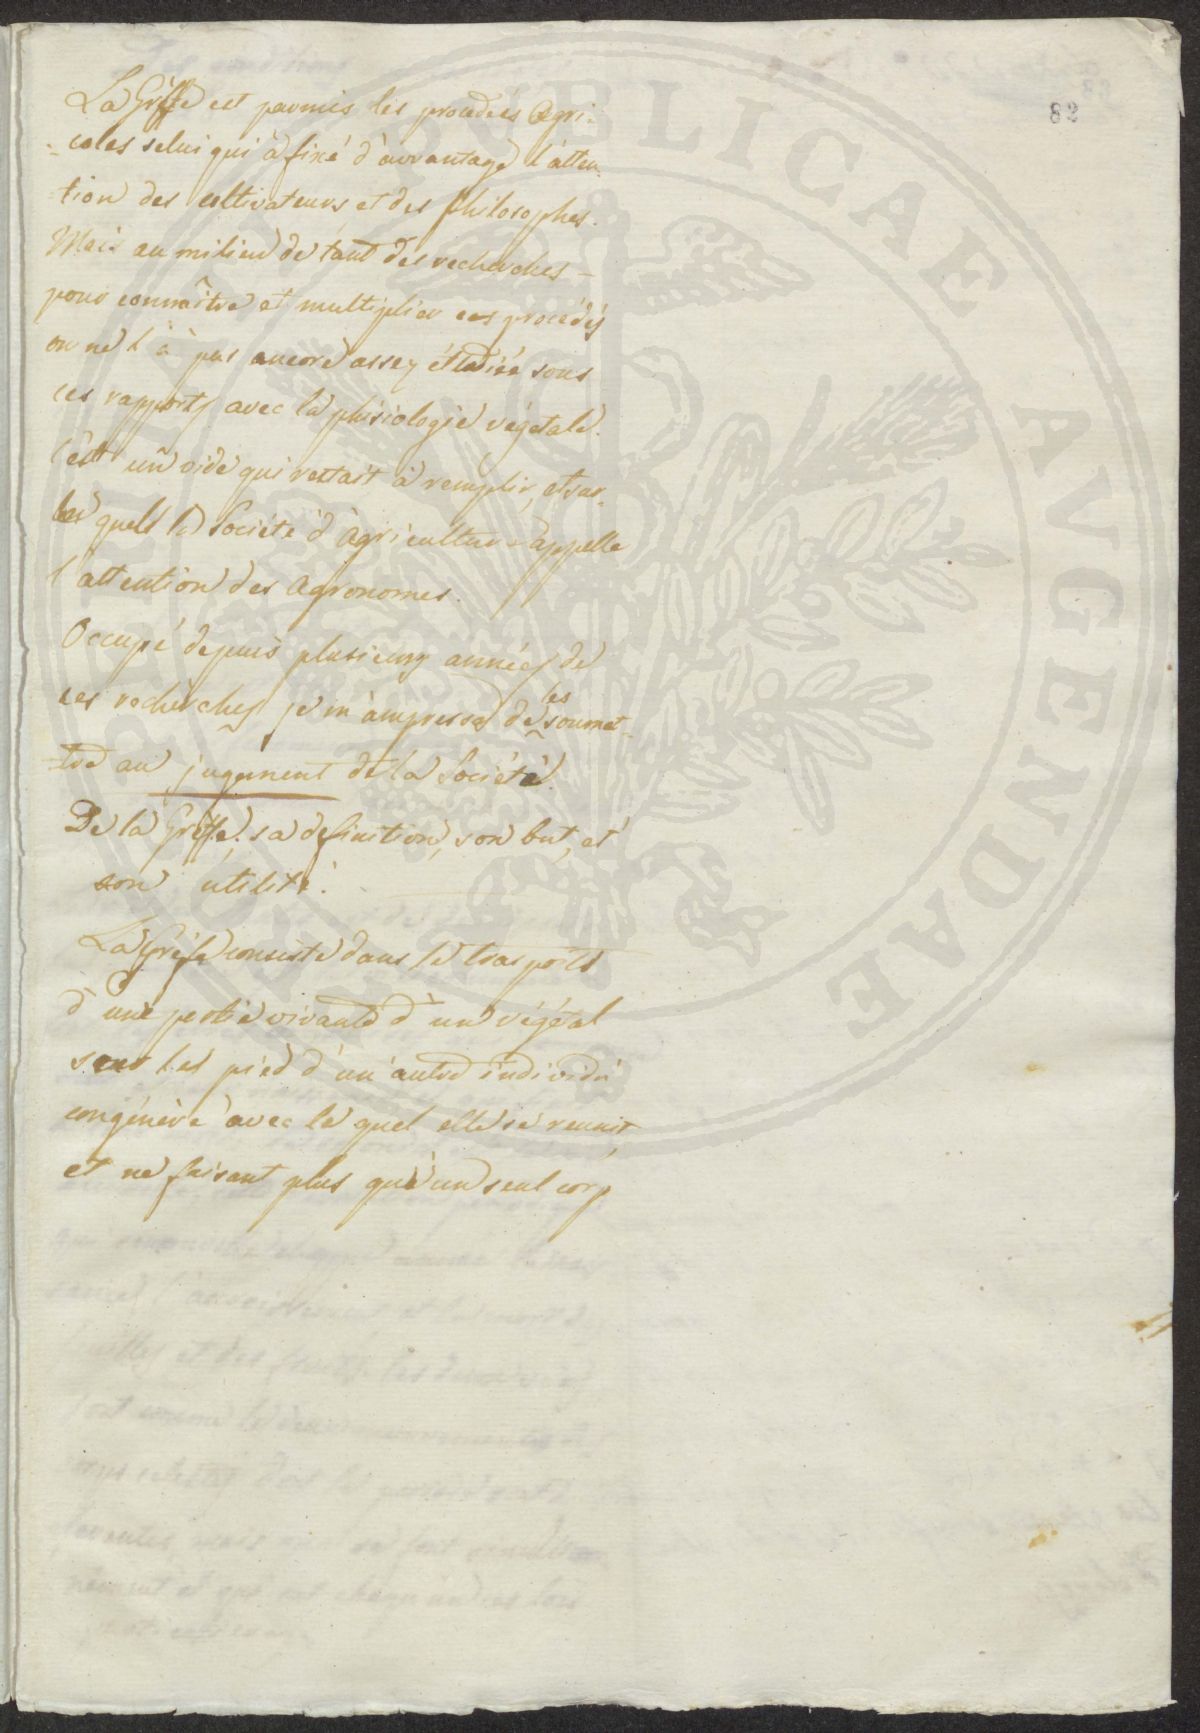 82
La Greffe est parmis les procedees Agri-
-coles selui qui à fixé d'avvantage l'atten-
tion des coltivateurs et des philosophes.
Mais au milieu de tant des recherches -
pour connaître et multiplier ces procédés
on ne l'à pas ancore assez étudiée sous
ses rapports avec la phisiologie végetale.
C'est un vide qui restait à remplir, et sur-
les quels la Société d'Agriculture appelle
l'attention des Agronomes.
Occupé depuis plusieurs années de
ces recherches je m'ampresse de les soumet-
-tre au jugement de la Société.
De la Greffe, sa definition, son but, et
son utilité.
La Grefe consiste dans le trasports
d'une partie vivante d'un végétal
sous les pied d'un autre individu
congénère avec le quel elle se reunit,
et ne faisant plus qu'un seul corp